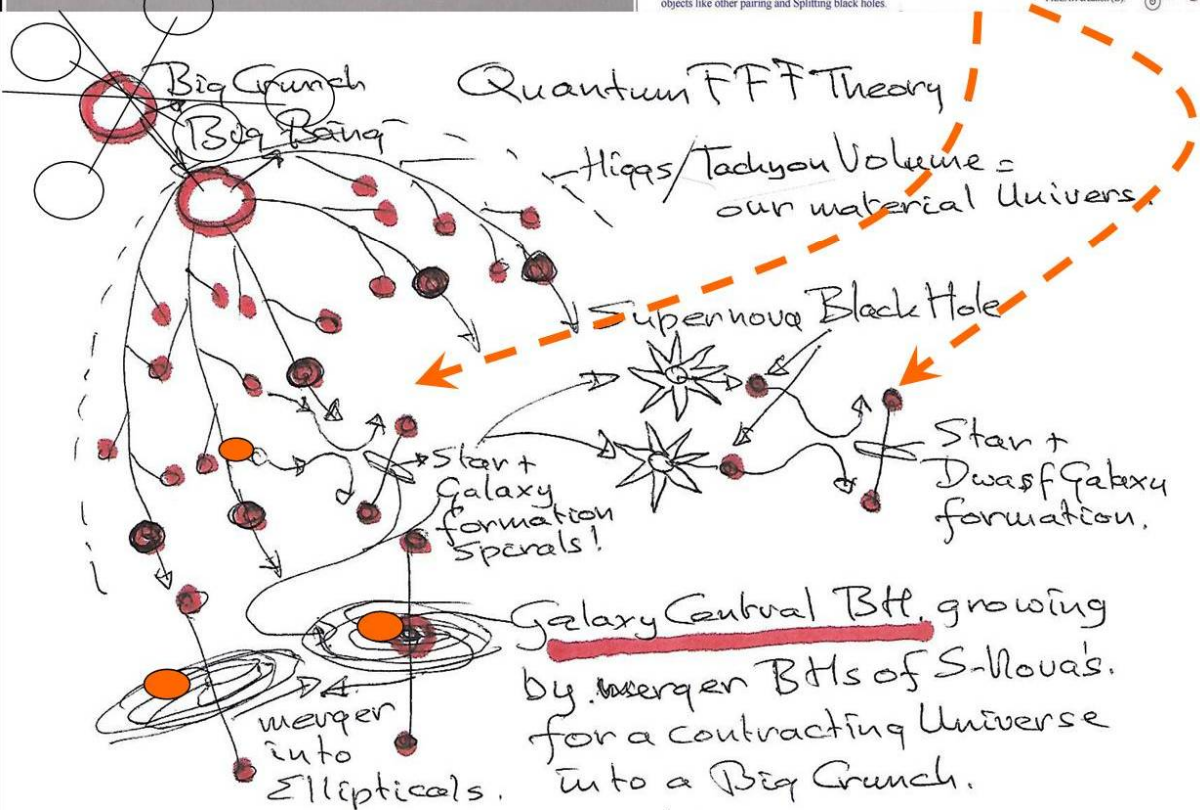 objects like other pairing and Splitting black holes.
Big Crunch
Big Bang
Quantum FFF Theory
Higgs/Tachyon Volume =
our material Univers.
Supernova Black Hole
Star +
Galaxy
formation
Spirals!
Star +
Dwasf Galaxy
formation.
Galaxy Central BH. growing
by merger BHs of S-Nova's.
for a contracting Universe
into a Big Crunch.
merger
into
Ellipticals.